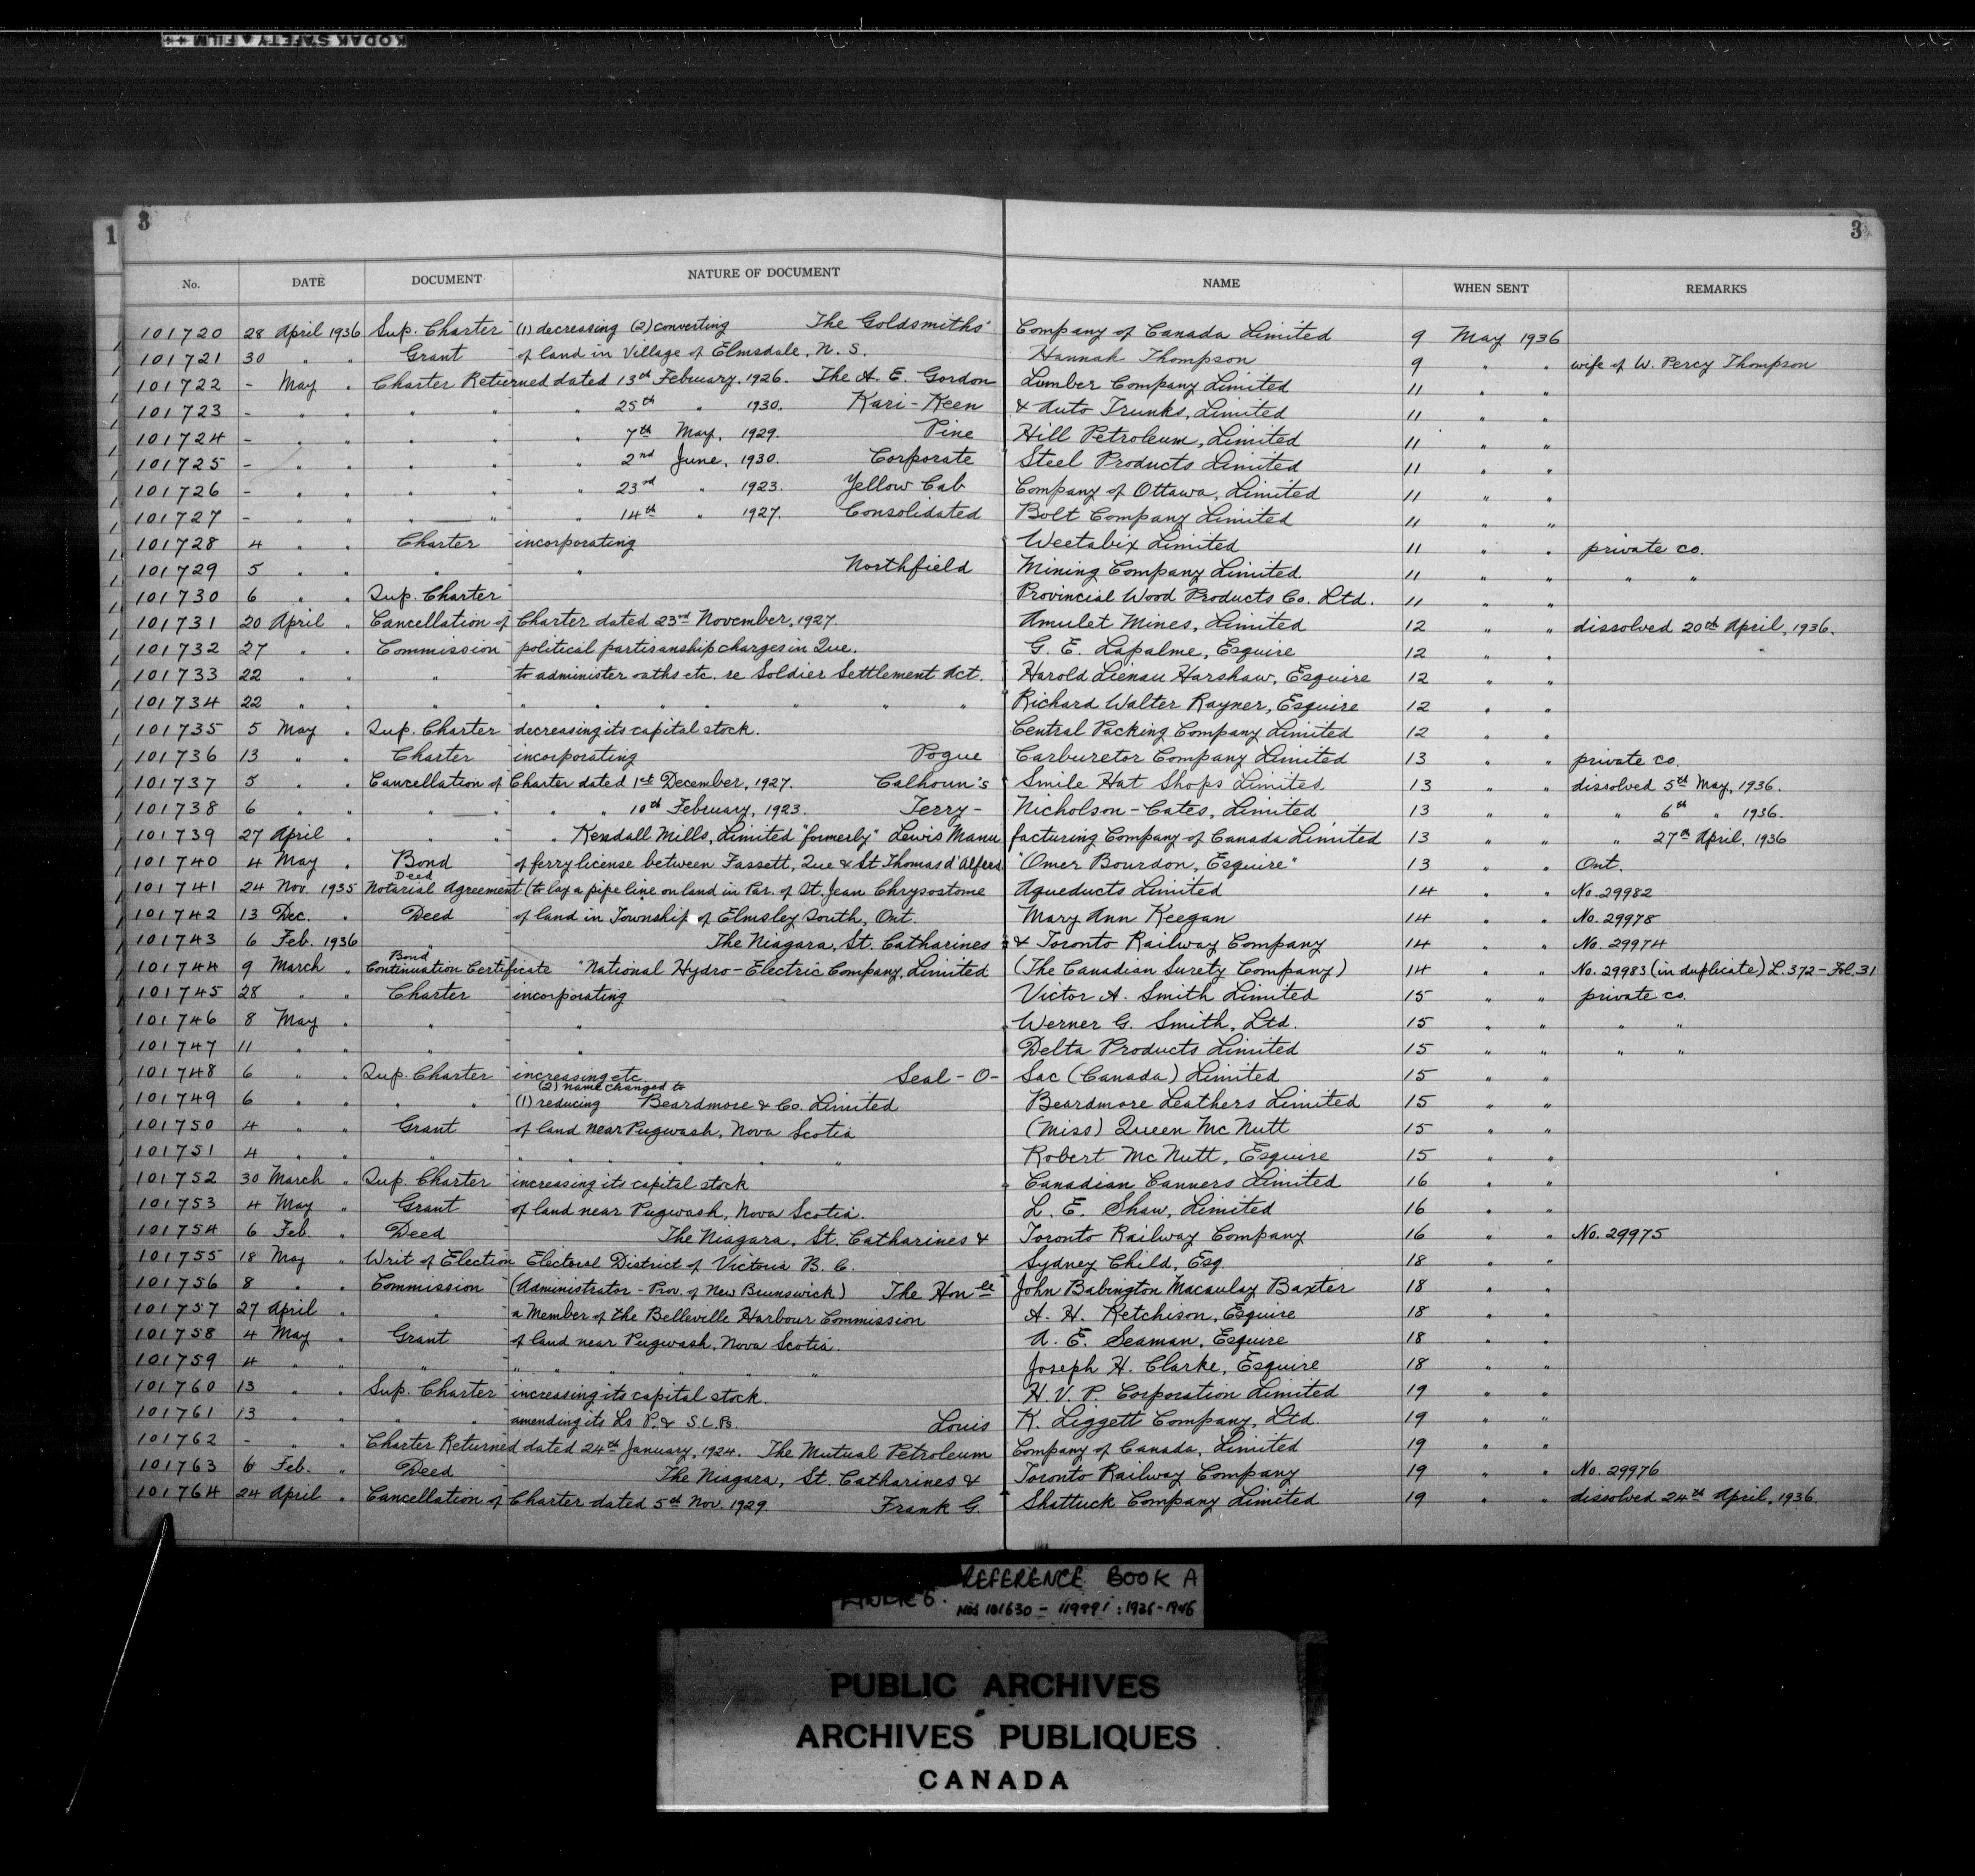 KODAK SAFETY A FILM
1 3 3
No. DATE DOCUMENT NATURE OF DOCUMENT NAME WHEN SENT REMARKS
101720 28 April 1936 Sup. Charter (1) decreasing (2) converting The Goldsmiths' Company of Canada Limited 9 May 1936
101721 30 " " Grant of land in Village of Elmsdale, N. S. Hannah Thompson 9 " " wife of W. Percy Thompson
101722 - May " Charter Returned dated 13th February, 1926. The A. E. Gordon Lumber Company Limited 11 " "
101723 - " " " " " 25th " 1930. Kari-Keen & Auto Trunks, Limited 11 " "
101724 - " " " " " 7th May, 1929. Pine Hill Petroleum, Limited 11 " "
101725 - " " " " " 2nd June, 1930. Corporate Steel Products Limited 11 " "
101726 - " " " " " 23rd " 1923. Yellow Cab Company of Ottawa, Limited 11 " "
101727 - " " " " " 14th " 1927. Consolidated Bolt Company Limited 11 " "
101728 4 " " Charter incorporating Weetabix Limited 11 " " private co.
101729 5 " " " " Northfield Mining Company Limited 11 " " " "
101730 6 " " Sup. Charter Provincial Wood Products Co. Ltd. 11 " "
101731 20 April " Cancellation of Charter dated 23rd November, 1927. Amulet Mines, Limited 12 " " dissolved 20th April, 1936.
101732 27 " " Commission political partisanship charges in Que. G. E. Lapalme, Esquire 12 " "
101733 22 " " " to administer oaths etc. re Soldier Settlement Act. Harold Lienau Harshaw, Esquire 12 " "
101734 22 " " " " " " " " " " Richard Walter Rayner, Esquire 12 " "
101735 5 May " Sup. Charter decreasing its capital stock. Central Packing Company Limited 12 " "
101736 13 " " Charter incorporating Pogue Carburetor Company Limited 13 " " private co.
101737 5 " " Cancellation of Charter dated 1st December, 1927. Calhoun's Smile Hat Shops Limited 13 " " dissolved 5th May, 1936.
101738 6 " " " " " " 10th February, 1923. Terry- Nicholson-Cates, Limited 13 " " " 6th " 1936.
101739 27 April " " " " Kendall Mills, Limited "formerly" Lewis Manufacturing Company of Canada Limited 13 " " " 27th April, 1936
101740 4 May " Bond of ferry license between Fassett, Que & St Thomas d'Alfred "Omer Bourdon, Esquire" 13 " " Ont.
Deed
101741 24 Nov. 1935 Notarial Agreement (to lay a pipe line on land in Par. of St. Jean Chrysostome Aqueducts Limited 14 " " No. 29982
101742 13 Dec. " Deed of land in Township of Elmsley South, Ont. Mary Ann Keegan 14 " " No. 29978
101743 6 Feb. 1936 " The Niagara, St. Catharines & Toronto Railway Company 14 " " No. 29974
Bond
101744 9 March " Continuation Certificate "National Hydro-Electric Company, Limited (The Canadian Surety Company) 14 " " No. 29983 (in duplicate) L. 372 - Fol. 31
101745 28 " " Charter incorporating Victor A. Smith Limited 15 " " private co.
101746 8 May " " " Werner G. Smith, Ltd. 15 " " " "
101747 11 " " " " Delta Products Limited 15 " " " "
101748 6 " " Sup. Charter increasing etc. Seal-O- Sac (Canada) Limited 15 " "
(2) name changed to
101749 6 " " " " (1) reducing Beardmore & Co. Limited Beardmore Leathers Limited 15 " "
101750 4 " " Grant of land near Pugwash, Nova Scotia (Miss) Queen McNutt 15 " "
101751 4 " " " " " " " " " Robert McNutt, Esquire 15 " "
101752 30 March " Sup. Charter increasing its capital stock Canadian Canners Limited 16 " "
101753 4 May " Grant of land near Pugwash, Nova Scotia. L. E. Shaw, Limited 16 " "
101754 6 Feb. " Deed The Niagara, St. Catharines & Toronto Railway Company 16 " " No. 29975
101755 18 May " Writ of Election Electoral District of Victoria B. C. Sydney Child, Esq. 18 " "
101756 8 " " Commission (Administrator - Prov. of New Brunswick) The Honble John Babington Macaulay Baxter 18 " "
101757 27 April " " a Member of the Belleville Harbour Commission A. H. Ketchison, Esquire 18 " "
101758 4 May " Grant of land near Pugwash, Nova Scotia. A. E. Seaman, Esquire 18 " "
101759 4 " " " " " " " " " Joseph H. Clarke, Esquire 18 " "
101760 13 " " Sup. Charter increasing its capital stock. H. V. P. Corporation Limited 19 " "
101761 13 " " " " amending its Ls P. & S. L. Ps. Louis K. Liggett Company, Ltd. 19 " "
101762 - " " Charter Returned dated 24th January, 1924. The Mutual Petroleum Company of Canada, Limited 19 " "
101763 6 Feb. " Deed The Niagara, St. Catharines & Toronto Railway Company 19 " " No. 29976
101764 24 April " Cancellation of Charter dated 5th Nov. 1929. Frank G. Shattuck Company Limited 19 " " dissolved 24th April, 1936.
REFERENCE BOOK A
Nos 101630 - 119991 : 1936-1946
PUBLIC ARCHIVES
ARCHIVES PUBLIQUES
CANADA